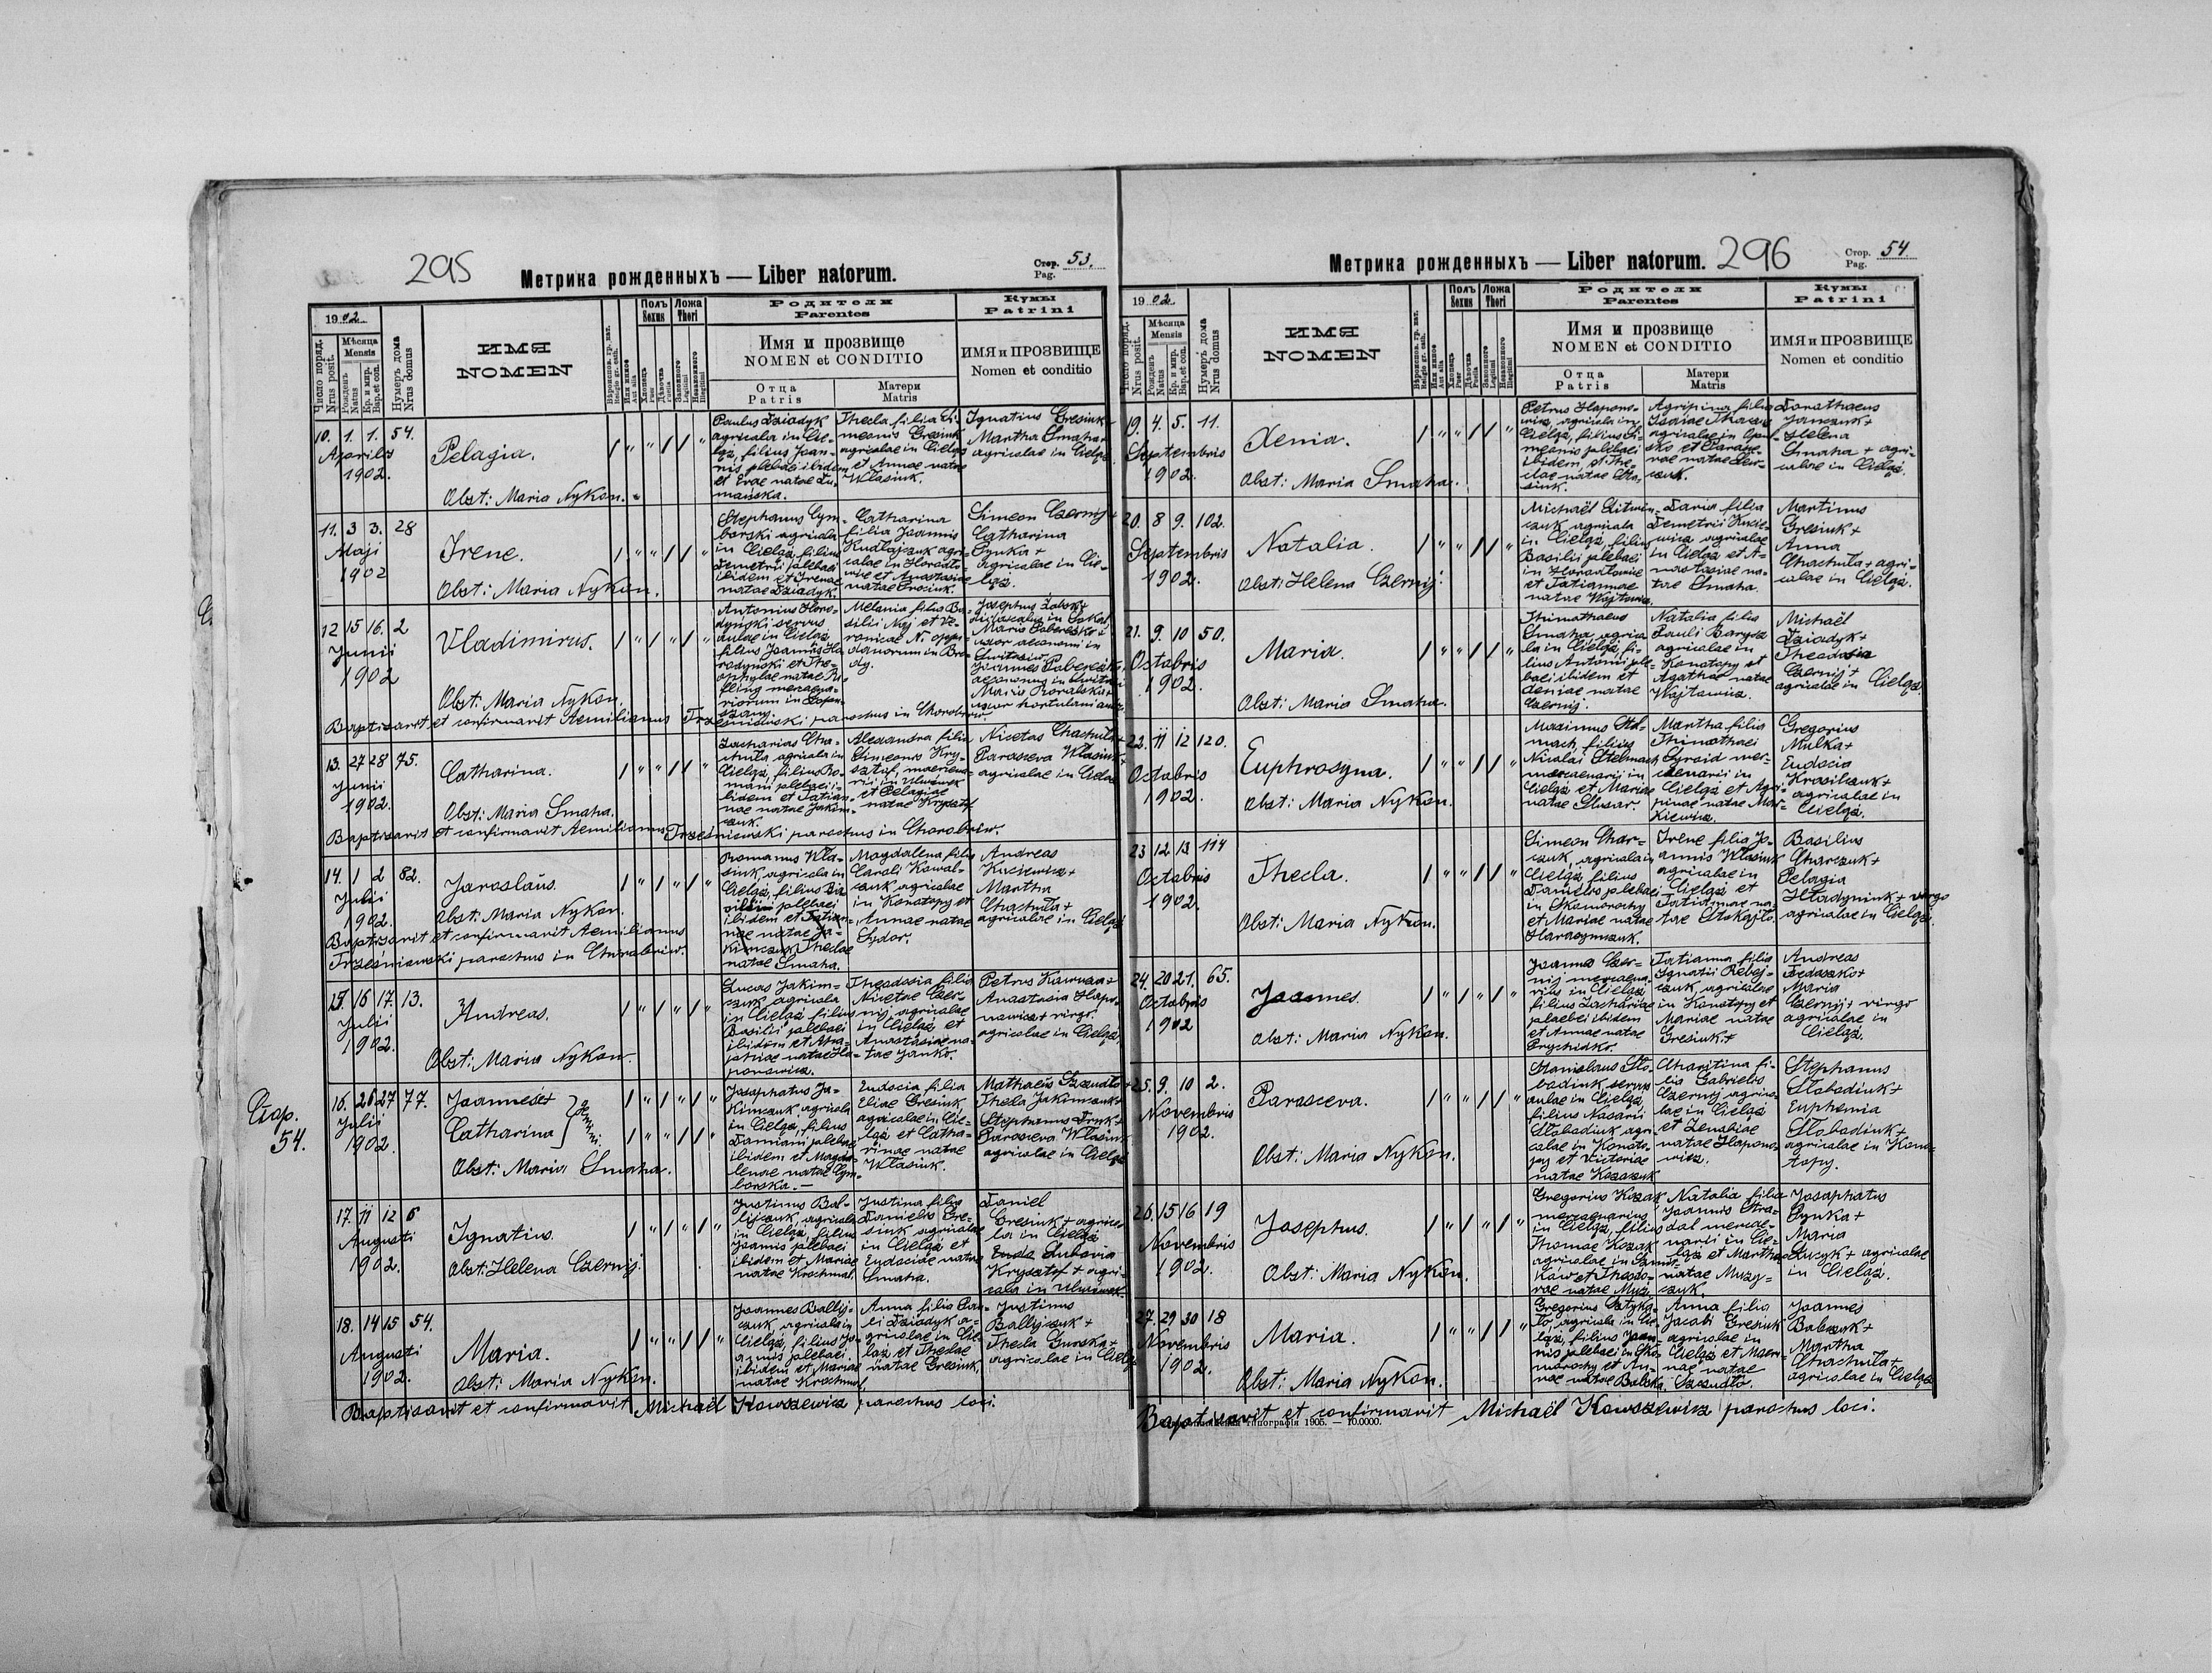 295
Метрика рожденныхъ — Liber natorum.
Стор. 53.
Pag.
1902.
Число поряд.
Nrus posit.
Мѣсяца
Mensis
Рожденъ
Natus
Кр. и мир.
Bap. et con.
Нумеръ дома
Nrus domus
ИМЯ
NOMEN
Вѣроиспов. гр. кат.
Religio gr. cath.
Или инное
Aut alia
Полъ
Sexus
Хлопець
Puer
Дѣвочка
Puella
Ложа
Thori
Законного
Legitimi
Незаконного
Illegitimi
Родители
Parentes
Имя и прозвище
NOMEN et CONDITIO
Отца
Patris
Матери
Matris
Кумы
Patrini
ИМЯ и ПРОЗВИЩЕ
Nomen et conditio
10. 1. 1. 54.
Aprilis
1902.
Pelagia.
Obst: Maria Nykon.
Paulus Dziadyk
agricola in Cie-
ląż, filius Joan-
nis plebaei ibidem
et Evae natae Zu-
mańska.
Thecla filia Si-
meonis Gresiuk
agricolae in Cieląż
et Annae natae
Własiuk.
Ignatius Gresiuk+
Martha Smaha+
agricolae in Cieląż
11. 3 3. 28
Maji
1902
Irene.
Obst: Maria Nykon.
Stephanus Cym-
borski agricola
in Cieląż, filius
Demetrii plebaei
ibidem et Irenae
natae Dziadyk.
Catharina
filia Joannis
Kudłajczuk agri-
colae in Horodło-
wice et Anastasiae
natae Prociuk.
Simeon Czernij+
Catharina
Pynka+
agricolae in Cie-
ląż.
12 15 16. 2
Junii
1902
Vladimirus.
Obst: Maria Nykon.
Antonius Horo-
dyński servus
aulae in Cieląż
filius Joannis Ho-
rodyński et The-
ophylae natae
mercena-
riorum in
Melania filia Ba-
silii Naj et Ve-
ronicae N. oppi-
danorum in Bro-
dy.
Josephus
in Sokal
Maria
uxor oeconomi in
Joannes
oeconomus in
Maria Kowalska+
uxor hortulani
Baptisavit et confirmavit Aemilianus Trześniowski parochus in Chorobrów.
13. 27 28 75.
Junii
1902.
Catharina.
Obst: Maria Smaha.
Zacharias Cha-
chuła agricola in
Cieląż, filius Ro-
mani plebaei i-
bidem et Tatian-
nae natae Jakim-
czuk.
Alexandra filia
Simeonis Kry-
sztof, mercena-
rii in Uhrynow
et Pelagiae
natae Krysztof
Nicetas Chachuła+
Parasceva Własiuk+
agricolae in Cieląż
Baptisavit et confirmavit Aemilianus Trześniowski parochus in Chorobrów.
14. 1 2 82.
Julii
1902.
Jaroslaus.
Obst: Maria Nykon.
Romanus Wła-
siuk, agricola in
Cieląż, filius Ba-
silii plebaei
ibidem et Tatian-
nae natae Ja-
kimczuk Theclae
natae Smaha.
Magdalena filia
Caroli Kowal-
czuk, agricolae
in Konotopy et
Annae natae
Sydor.
Andreas
Kuciewicz+
Martha
Chachuła+
agricolae in Cieląż
Baptisavit et confirmavit Aemilianus
Trześniowski parochus in Chorobrów.
15. 16 17. 13.
Julii
1902.
Andreas.
Obst: Maria Nykon.
Lucas Jakim-
czuk agricola
in Cieląż filius
Basilii plebaei
ibidem et Aga-
phiae natae Ha-
ponowicz.
Theodosia filia
Nicetae Czer-
nij, agricolae
in Cieląż et
Anastasiae na-
tae Janko.
Petrus Kawuza+
Anastasia Hapo-
nowicz+ virgo
agricolae in Cieląż
Стор.
54.
16. 26 27 77.
Julii
1902.
Joannes et
Catharina
gemini.
Obst: Maria Smaha.
Josaphatus Ja-
kimczuk, agricola
in Cieląż, filius
Damiani plebaei
ibidem et Magda-
lenae natae Cym-
borska.—
Eudocia filia
Eliae Gresiuk
agricolae in Cie-
ląż et Catha-
rinae natae
Własiuk.
Mathaeus Szczudło+
Thecla Jakimczuk+
Stephanus Druk+
Parasceva Własiuk
agricolae in Cieląż
17. 11 12 6
Augusti
1902.
Ignatius.
Obst: Helena Czernij.
Justinus Bal-
lijczuk, agricola
in Cieląż, filius
Joannis plebaei
ibidem et Mariae
natae Krochmal.
Justina filia
Danielis Gre-
siuk agricolae
in Cieląż et
Eudociae natae
Smaha.
Daniel
Gresiuk+ agrico-
la in Cieląż
Eudo Lubovia
Krysztof+ agri-
cola in
18. 14 15 54.
Augusti
1902.
Maria.
Obst: Maria Nykon.
Joannes Ballij-
czuk, agricola in
Cieląż, filius Jo-
annis plebaei
ibidem et Mariae
natae Krochmal.
Anna filia Pau-
li Dziadyk a-
gricolae in Cie-
ląż et Theclae
natae Gresiuk.
Justinus
Ballijczuk+
Thecla Gurska+
agricolae in Cieląż
Baptisavit et confirmavit Michaël Kowszewicz parochus loci.
Метрика рожденныхъ — Liber natorum.
296
Стор. 54.
Pag.
1902.
Число поряд.
Nrus posit.
Мѣсяца
Mensis
Рожденъ
Natus
Кр. и мир.
Bap. et con.
Нумеръ дома
Nrus domus
ИМЯ
NOMEN
Вѣроиспов. гр. кат.
Religio gr. cath.
Или инное
Aut alia
Полъ
Sexus
Хлопець
Puer
Дѣвочка
Puella
Ложа
Thori
Законного
Legitimi
Незаконного
Illegitimi
Родители
Parentes
Имя и прозвище
NOMEN et CONDITIO
Отца
Patris
Матери
Matris
Кумы
Patrini
ИМЯ и ПРОЗВИЩЕ
Nomen et conditio
19. 4. 5. 11.
Septembris
1902.
Xenia.
Obst: Maria Smaha.
Petrus Hapono-
wicz, agricola in
Cieląż, filius Si-
meonis plebaei
ibidem, et The-
clae natae Wła-
siuk.
Agripina filia
Isaiae Tkaczuk
agricolae in
et Parasce-
vae natae
Dorothaeus
Janczuk+
Helena
Smaha+ agri-
colae in Cieląż.
20. 8 9. 102.
Septembris
1902.
Natalia.
Obst: Helena Czernij.
Michaël Litwin-
czuk agricola
in Cieląż, filius
Basilii plebaei
in Horodłowice
et Tatiannae
natae Wojtowicz.
Daria filia
Demetrii Kucie-
wicz agricolae
in Cieląż et A-
nastasiae na-
tae Smaha.
Martinus
Gresiuk+
Anna
Chachuła+ agri-
colae in Cieląż.
21. 9. 10 50.
Octobris
1902.
Maria.
Obst: Maria Smaha.
Thimothaeus
Smaha, agrico-
la in Cieląż, fi-
lius Antonii ple-
baei ibidem et
Xeniae natae
Czernij.
Natalia filia
Pauli Barysz
agricolae in
Konotopy et
Agathae natae
Wojtowicz.
Michaël
Dziadyk+
Theodosia
Czernij+
agricolae in Cieląż.
22. 11 12 120.
Octobris
1902.
Euphrosyna.
Obst: Maria Nykon.
Maximus Stel-
mach, filius
Nicolai Stelmach
mercenarii in
Cieląż et Mariae
natae Slusar.
Martha filia
Thimothaei
Syroid mer-
cenarii in
Cieląż et Agri-
pinae natae Mar-
kiewicz.
Gregorius
Mulka+
Eudocia
Krasilczuk+
agricolae in
Cieląż.
23 12 13 114
Octobris
1902.
Thecla.
Obst: Maria Nykon.
Simeon Char-
czuk, agricola in
Cieląż filius
Danielis plebaei
in Skomorochy
et Mariae natae
Harasymczuk.
Irene filia Jo-
annis Własiuk
agricolae in
Cieląż et
Tatiannae na-
tae Stokajło.
Basilius
Charczuk+
Pelagia
Hładyniuk+ virgo
agricolae in Cieląż.
24. 20 21. 65.
Octobris
1902
Joannes.
Obst: Maria Nykon.
Joannes Czer-
nij mercena-
rius in Cieląż
filius Zachariae
plebaei ibidem
et Annae natae
Prychidko.
Tatianna filia
Ignatii Rebej-
czuk, agricolae
in Konotopy et
Mariae natae
Gresiuk.+
Andreas
Fedaszko+
Maria
Czernij+ virgo
agricolae in
Cieląż.
25. 9. 10 2.
Novembris
1902.
Parasceva.
Obst: Maria Nykon.
Stanislaus Sło-
badiuk servus
aulae in Cieląż
filius Nasarii
Słobadiuk agri-
colae in Konoto-
py et Victoriae
natae Kozaczuk
Charitina fi-
lia Gabrielis
Czernij agrico-
lae in Cieląż
et Zenobiae
natae Hapono-
wicz.
Stephanus
Słobadiuk+
Euphemia
Słobadiuk+
agricolae in Kono-
topy.
26. 15 16 19
Novembris
1902.
Josephus.
Obst: Maria Nykon.
Gregorius Kozak
mercenarius
in Cieląż, filius
Thomae Kozak
agricolae in
et Theodo-
rae natae
Natalia filia
Joannis Stra-
dal merce-
narii in Cie-
ląż et Marthae
natae Muzy-
czuk.
Josaphatus
Pynka+
Maria
Łucyk+ agricolae
in Cieląż.
27. 29 30 18
Novembris
1902.
Maria.
Obst: Maria Nykon.
Gregorius Satyka-
ło, agricola in Cie-
ląż, filius Joan-
nis plebaei in Sko-
morochy et An-
nae natae Balska.
Anna filia
Jacobi Gresiuk
agricolae in
Cieląż et Mari-
nae natae
Szczudło.
Joannes
Babczuk+
Martha
Chachuła+
agricolae in Cieląż
Baptisavit et confirmavit Michaël Kowszewicz parochus loci.
типографія 1905. — 10.0000.